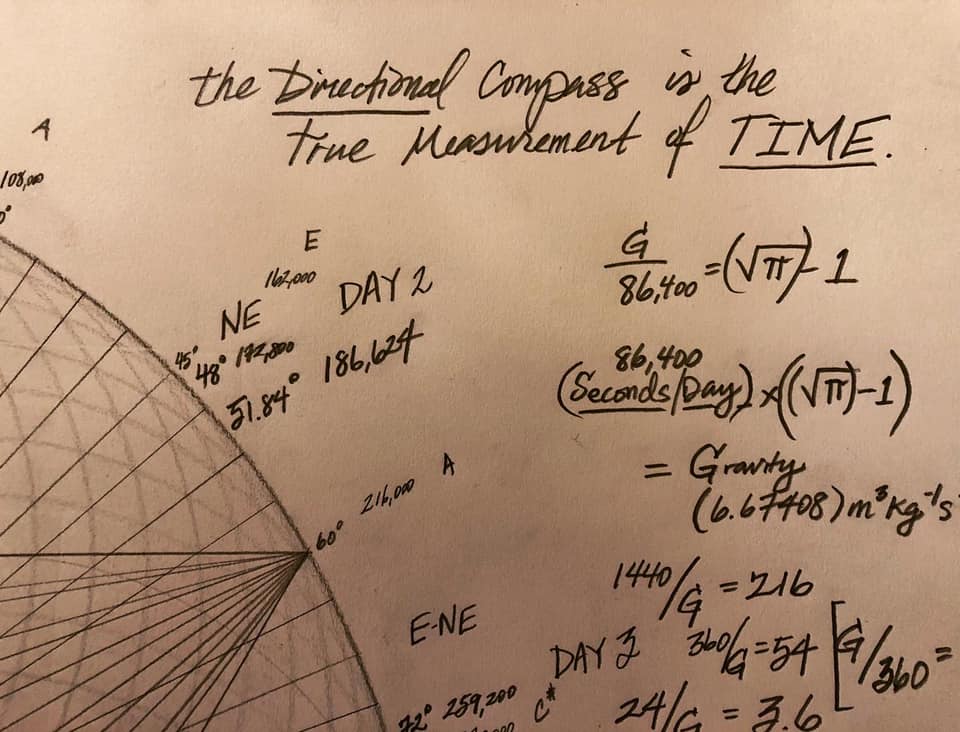 the Directional Compass is the
True Measurement of TIME.
A
108,000
0°
E
162,000
NE
DAY 2
45°
48° 172,800
51.84° 186,624
G/86,400 = (√π) - 1
86,400
(Seconds/Day) × ((√π)-1)
= Gravity
(6.67408) m³ kg⁻¹ s
A
216,000
60°
1440/G = 216
E-NE
DAY 3
360/G = 54 [G/360 =
72° 259,200
C*
24/G = 3.6